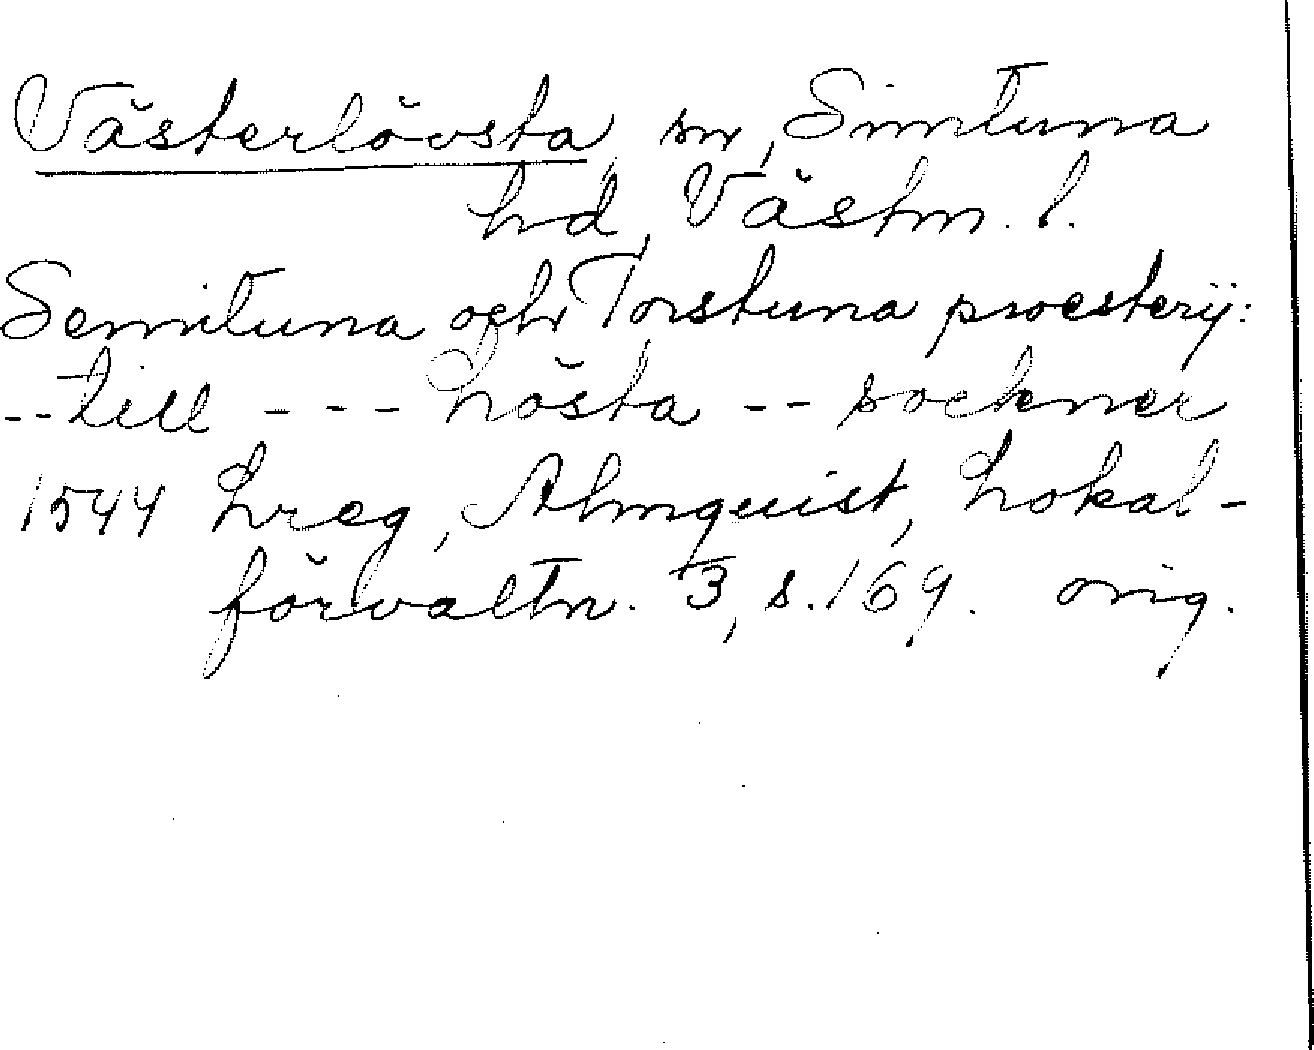 Västerlövsta sn, Simtuna
hd, Västm. l.
Semituna ochr Torstuna proesterij:
-- till - - - Lösta -- sockner
1544 Lreg, Almquist, Lokal-
förvaltn. 3, s. 169. orig.